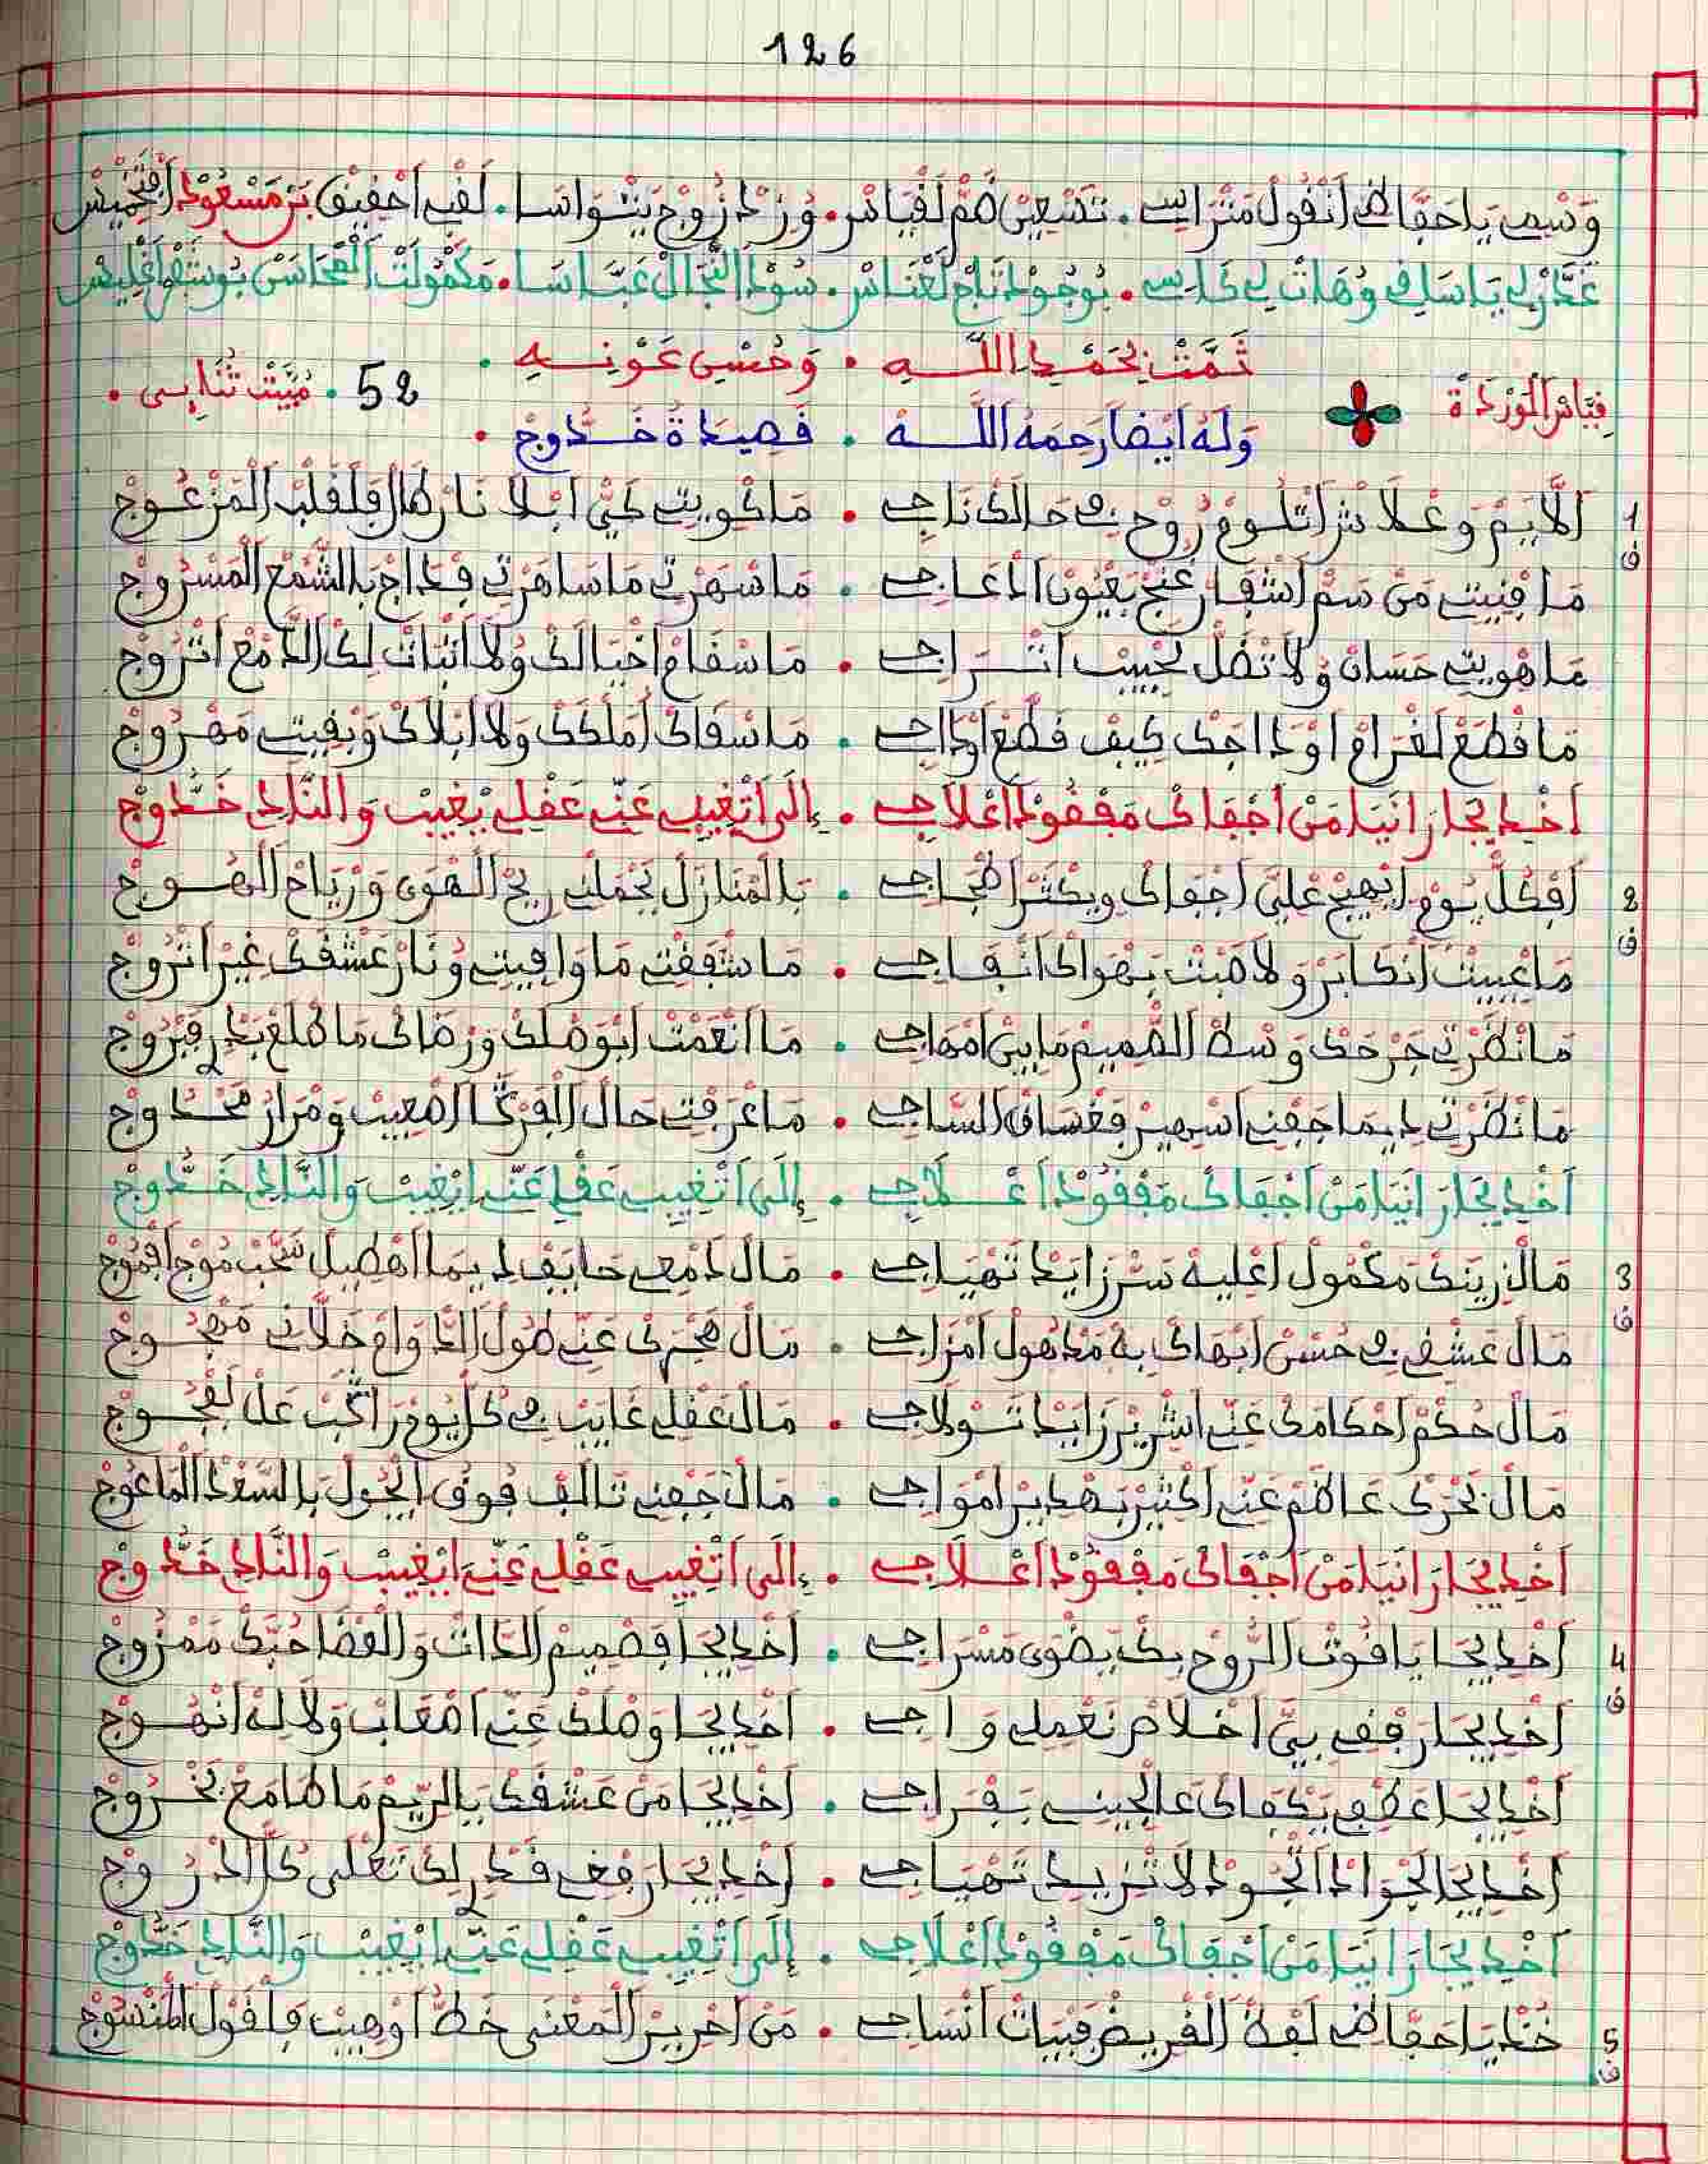 126
وَسْمِي يَا حَفَّاظِي انْقُولْ مَتْرَاسِي . تَسْعِينْ هُمْ لَقْيَاسْ . وُزِدْ زُوجْ بِيتْ وَاسَا . لَقْبِي احْقِيقْ بَنْ مَسْعُودْ
غَدَّرْ لِي يَا سَاقِي وُهَاتْ لِي كَاسِي . بُوجُودْ تَاجْ لَعْنَاسْ . سُودْ النْجَالْ عَبَّاسَا . مَكْمُولْتْ الْمْحَاسَنْ
ثَمَّتْ بِحَمْدِ اللَّهِ . وَحُسْنِ عَوْنِهِ .
قِيَاسْ الْوَرْدَةْ
52 . مْبَيَّتْ ثْنَايِي .
وَلَهُ أَيْضًا رَحِمَهُ اللَّهُ . قَصِيدَةُ خَدُّوجْ .
1 ف
الَّايَمْ وَعْلَاشْ اتْلُومْ رُوحِي فِي حَالَكْ نَاجِي . مَا كْوِيتِ كَيّْ ابْلَا نَارْ طَالْقَ لَقْلَبْ الْمَزْعُوجْ
مَا فْنِيتِ مَنْ سَمّْ اشْفَارْ غَنْجْ بَعْيُونْ ادْعَاجِي . مَا سْهَرْتِي مَا سَاهَرْتِي فِدَاجْ بِالشّْمَعْ الْمَسْرُوجْ
مَا هْوِيتِ حَسَانْ وُلَا تْضَلْ تَحْسِبْ اتْرَاجِي . مَا سْقَامْ اخْيَالَكْ وُلَا انْبَاتْ لِكْ الدَّمْعْ اتْرُوجْ
مَا قْطَعْ لَغْرَامْ اوْدَاجَكْ كِيفْ قْطَعْ اوْدَاجِي . مَا سْقَاكْ امْلَكَكْ وَلَا ابْلَاكْ وَبْقِيتِ مَهْرُوجْ
أَخْدِيجَا رَانِيَا مَنْ اجْفَاكْ مَفْقُودْ اعْلَاجِي . إِلَى اتْغِيبِ عَنِّي عَقْلِي يْغِيبْ وَالنَّادِي خَدُّوجْ
2 ف
أَفْكُلّْ يُومْ ايْهِيجْ عْلِيَّ اجْفَاكْ وِيكْثَرْ اهْجَاجِي . بَالْمْنَازَلْ يَحْمَلْنِي رِيحْ الْهْوَى وَرْيَاحْ الْهُوجْ
مَا عْيِيتْ انْكَابَرْ وَلَا صَبْتْ بَهْوَاكْ انْفَاجِي . مَا شْفَقْتِ مَا وَافِيتِ وُنَارْ عَشْقَكْ غِيرْ اتْرُوجْ
مَا نْظَرْتِي جَرْحَكْ وَسْطْ الصّْمِيمْ مَا بِينْ امْهَاجِي . مَا انْعَمْتْ ابْوَصْلَكْ وَرْضَاكْ مَا طْلَعْ بَدْرِ فَبْرُوجْ
مَا نْظَرْتِي دِيمَا جَفْنِي اسْهِيرْ فَغْسَاقْ السَّاجِي . مَا عْرَفْتِ حَالْ الْفَرْكَا اصْعِيبْ وَمْرَارْ مَحْدُوجْ
أَخْدِيجَا رَانِيَا مَنْ اجْفَاكْ مَفْقُودْ اعْلَاجِي . إِلَى اتْغِيبِ عَقْلِي عَنِّي ايْغِيبْ وَالنَّادِي خَدُّوجْ
3 ف
مَالْ زِينَكْ مَكْمُولْ اعْلِيهْ سَرّْ زَايَدْ تَهْيَاجِي . مَالْ دَمْعِي حَايَفْ دِيمَا اهْطِيلْ سُحْبْ مُوجْ افْمُوجْ
مَالْ عَشْقِي فِي حُسْنْ ابْهَاكْ بِهْ مَدْهُولْ امْزَاجِي . مَالْ هَجْرَكْ عَنِّي طُولْ الدّْوَامْ خَلَّانِي مَهْجُوجْ
مَالْ حُكْمْ احْكَامَكْ عَنِّي اشْرِيرْ زَايَدْ تَسْوْلَاجِي . مَالْ عَقْلِي غَايَبْ فِي كُلّْ يُومْ رَاكَبْ عَلَى لَفْجُوجْ
مَالْ بَحْرَكْ عَاظَمْ عَنِّي اكْثِيرْ بَهْدِيرْ امْوَاجِي . مَالْ جَفْنِي تَالَفْ فُوقْ الْحُولْ بِالسَّعْدْ الْمَاعُوجْ
أَخْدِيجَا رَانِيَا مَنْ اجْفَاكْ مَفْقُودْ اعْلَاجِي . إِلَى اتْغِيبِ عَقْلِي عَنِّي ايْغِيبْ وَالنَّادِي خَدُّوجْ
4 ف
أَخْدِيجَا يَا قُوتْ الرُّوحْ بِكْ يَضْوَى مَسْرَاجِي . أَخْدِيجَا فَصْمِيمْ الدَّاتْ وَالْعْضَا حُبَّكْ مَمْزُوجْ
أَخْدِيجَا رَفْقِي بِيَّ اخْلَاصْ نَعْمِلِي وَاجِي . أَخْدِيجَا وَصْلَكْ عَنِّي اصْعَابْ وَلَا لِهْ انْهُوجْ
أَخْدِيجَا عَطْفِي يَكْفَاكْ عَالْجِينِي بَفْرَاجِي . أَخْدِيجَا مَنْ عَشْقَكْ يَالرِّيمْ مَا طَامَعْ بَخْرُوجْ
أَخْدِيجَا الْجْوَادْ اتْجُودْ لَا تْزِيدِي تَهْيَاجِي . أَخْدِيجَا رَفْعِي قَدْرِكْ تَعْلَى كُلّْ ادْرُوجْ
أَخْدِيجَا رَانِيَا مَنْ اجْفَاكْ مَفْقُودْ اعْلَاجِي . إِلَى اتْغِيبِ عَقْلِي عَنِّي ايْغِيبْ وَالنَّادِي خَدُّوجْ
5 ف
خُدْ يَا حَفَّاظِي لَفْظْ الْقْرِيضْ فَبْيَاتْ انْسَاجِي . مَنْ احْرِيرْ الْمَعْنَى خَطّْ اوْهِيبْ فَاقْوَلْ الْمَنْسُوجْ